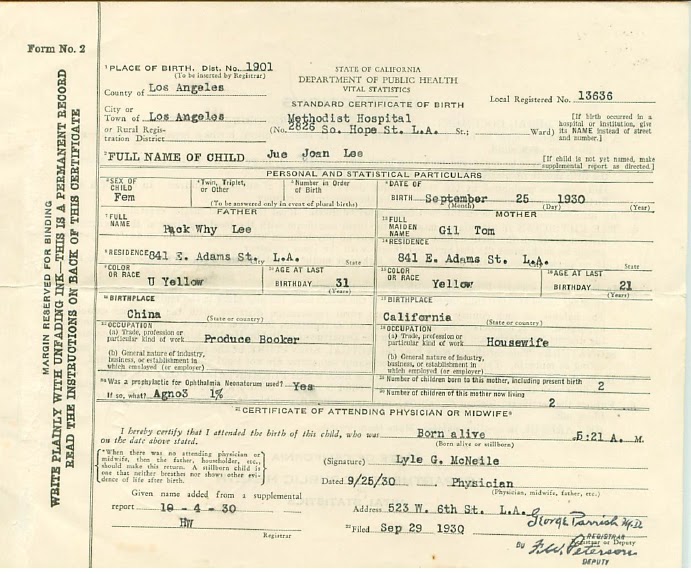 Form No. 2
MARGIN RESERVED FOR BINDING
WRITE PLAINLY WITH UNFADING INK—THIS IS A PERMANENT RECORD
READ THE INSTRUCTIONS ON BACK OF THIS CERTIFICATE
1 PLACE OF BIRTH. Dist. No. 1901
(To be inserted by Registrar)
County of Los Angeles
City or
Town of Los Angeles
or Rural Regis-
tration District
STATE OF CALIFORNIA
DEPARTMENT OF PUBLIC HEALTH
VITAL STATISTICS
STANDARD CERTIFICATE OF BIRTH
Methodist Hospital
(No. 2826 So. Hope St. L.A. St.; Ward)
Local Registered No. 13636
[If birth occurred in a
hospital or institution, give
its NAME instead of street
and number.]
2 FULL NAME OF CHILD Jue Joan Lee
[If child is not yet named, make
supplemental report as directed.]
PERSONAL AND STATISTICAL PARTICULARS
SEX OF
CHILD
Fem
Twin, Triplet,
or Other
Number in Order
of Birth
(To be answered only in event of plural births)
DATE OF
BIRTH September 25 1930
(Month) (Day) (Year)
FATHER
FULL
NAME Pack Why Lee
RESIDENCE 841 E. Adams St., L.A.
State
COLOR
OR RACE
U Yellow
AGE AT LAST
BIRTHDAY 31
(Years)
BIRTHPLACE
China
(State or country)
OCCUPATION
(a) Trade, profession or
particular kind of work Produce Booker
(b) General nature of industry,
business, or establishment in
which employed (or employer)
MOTHER
FULL
MAIDEN
NAME Gil Tom
RESIDENCE
841 E. Adams St. L.A.
State
COLOR
OR RACE
Yellow
AGE AT LAST
BIRTHDAY 21
(Years)
BIRTHPLACE
California
(State or country)
OCCUPATION
(a) Trade, profession or
particular kind of work Housewife
(b) General nature of industry,
business, or establishment in
which employed (or employer)
Was a prophylactic for Ophthalmia Neonatorum used? Yes
If so, what? Agno3 1%
Number of children born to this mother, including present birth 2
Number of children of this mother now living 2
CERTIFICATE OF ATTENDING PHYSICIAN OR MIDWIFE*
I hereby certify that I attended the birth of this child, who was Born alive 5:21 A. M.
on the date above stated. (Born alive or stillborn)
*When there was no attending physician or
midwife, then the father, householder, etc.,
should make this return. A stillborn child is
one that neither breathes nor shows other evi-
dence of life after birth.
(Signature) Lyle G. McNeile
Dated 9/25/30 Physician
(Physician, midwife, father, etc.)
Given name added from a supplemental
report 10-4-30
HW
Registrar
Address 523 W. 6th St. L.A.
Filed Sep 29 1930
George Parrish M.D.
REGISTRAR
Registrar or Deputy
By F.W. Peterson
DEPUTY